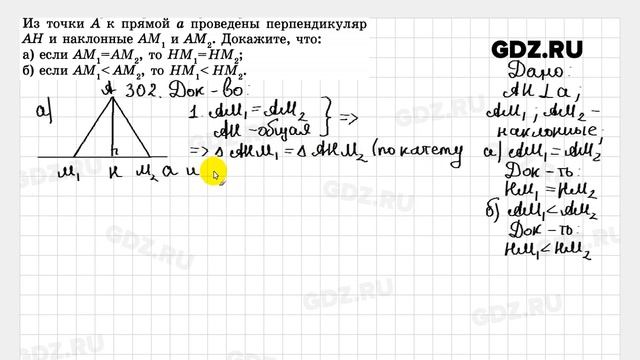 Из точки A к прямой a проведены перпендикуляр
AH и наклонные AM₁ и AM₂. Докажите, что:
а) если AM₁=AM₂, то HM₁=HM₂;
б) если AM₁<AM₂, то HM₁<HM₂.
GDZ.RU
302. Док-во:
а)
A
M₁ H M₂ a
1. AM₁ = AM₂
AH - общая } =>
=> △ AHM₁ = △ AHM₂ (по катету
и
Дано:
AH ⊥ a;
AM₁; AM₂ -
наклонные;
а) AM₁ = AM₂
Док-ть:
HM₁ = HM₂
б) AM₁ < AM₂
Док-ть:
HM₁ < HM₂
GDZ.RU
GDZ.RU
GDZ.RU
GDZ.RU